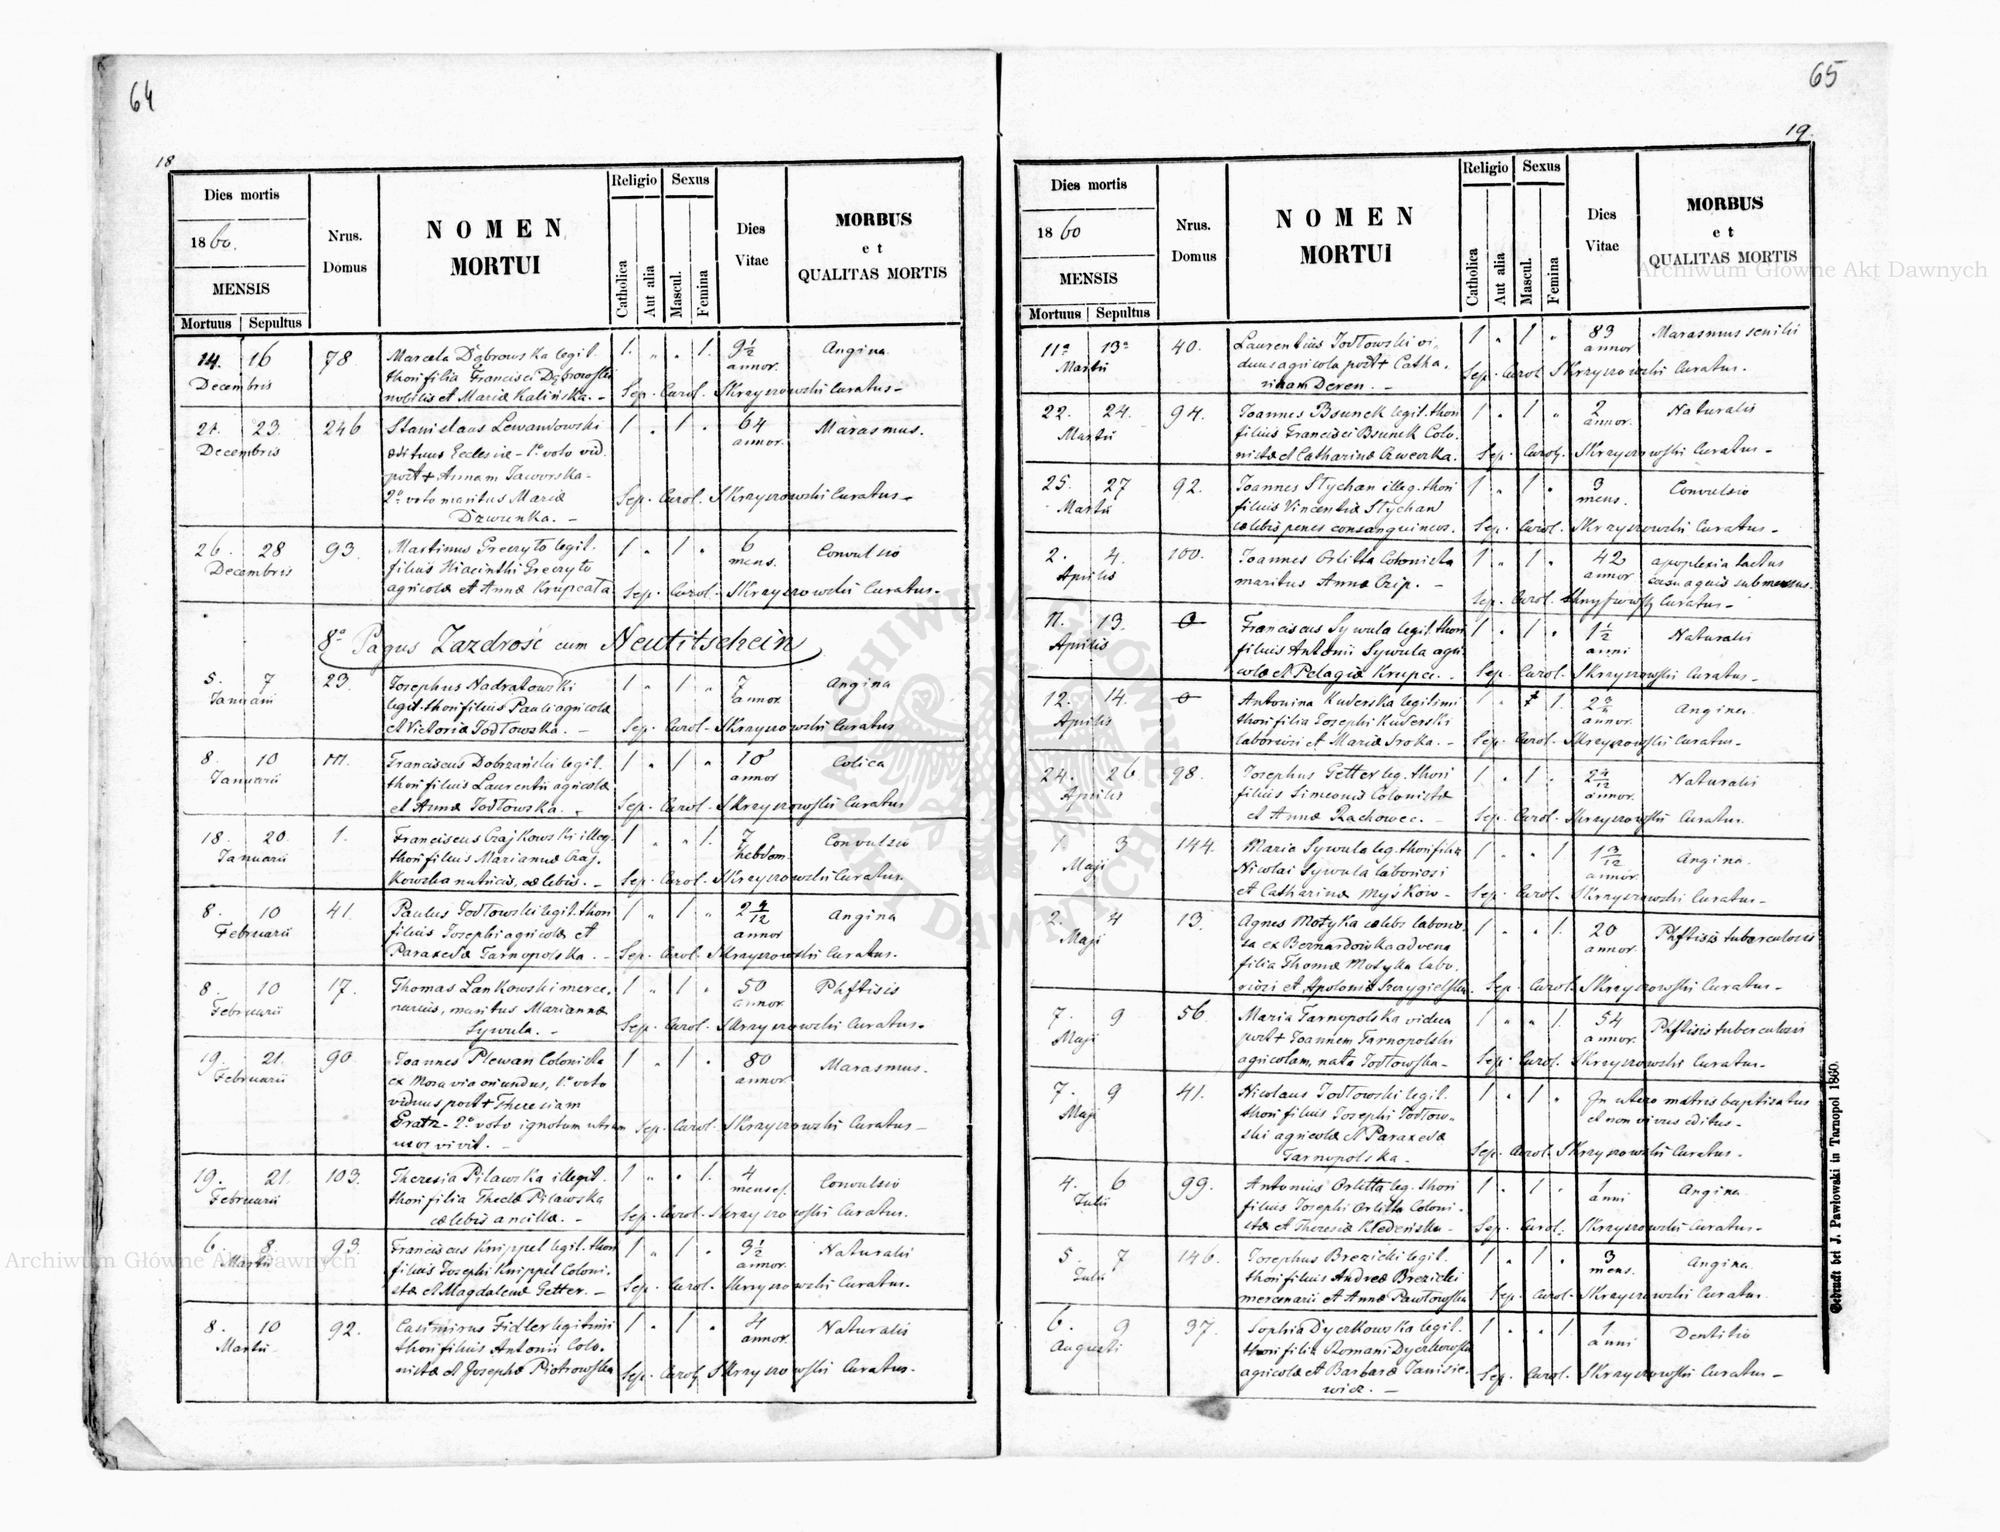 64
18
Dies mortis
1860.
MENSIS
Mortuus | Sepultus
Nrus. Domus
NOMEN
MORTUI
Religio
Catholica
Aut alia
Sexus
Mascul.
Femina
Dies Vitae
MORBUS
et
QUALITAS MORTIS
14. 16 78 Marcela Dąbrowska legit. 1. „ „ 1. 9½ Angina
Decembris thori filia Francisci Dąbrowski annor.
nobilis et Mariæ Kalińska. – Sep. Carol. Skrzyszowski Curatus –
21. 23. 246 Stanislaus Lewandowski 1 „ 1 „ 64 Marasmus.
Decembris ædituus Ecclesiæ – 1º voto vid. annor.
post + Annam Jaworska –
2º voto maritus Mariæ Sep. Carol. Skrzyszowski Curatus –
Dzwunka. –
26. 28 93. Martinus Greczyło legit. 1 „ 1 „ 6 Convulsio
Decembris filius Hiacinthi Greczyło mens.
agricolæ et Annæ Krupcata Sep. Carol. Skrzyszowski Curatus –
8º Pagus Zazdrość cum Neutitschein
5. 7 23. Josephus Nadratowski 1 „ 1 „ 7 Angina
Januarii legit. thori filius Pauli agricolæ annor.
et Victoria Jodłowska. – Sep. Carol. Skrzyszowski Curatus
8. 10 111. Franciscus Dobrzański legit. 1 „ 1 „ 10 Colica
Januarii thori filius Laurentii agricolæ annor
et Annæ Jodłowska. – Sep. Carol. Skrzyszowski Curatus
18. 20 1. Franciscus Czajkowski illeg. 1 „ „ 1. 7 Convulsio
Januarii thori filius Mariannæ Czaj- hebdom.
kowska nutricis, cælebis. – Sep. Carol. Skrzyszowski Curatus.
8. 10 41. Paulus Jodłowski legit. thori 1 „ 1 „ 2 4/12 Angina
Februarii filius Josephi agricolæ et annor
Paraxedæ Tarnopolska. – Sep. Carol. Skrzyszowski Curatus.
8. 10 17. Thomas Lankowski merce- 1 „ 1 „ 50 Phftisis
Februarii narius, maritus Mariannæ annor.
Sywula. – Sep. Carol. Skrzyszowski Curatus.
19. 21. 90. Joannes Plewan Colonista 1 „ 1 „ 80 Marasmus.
Februarii ex Moravia oriundus, 1º voto annor.
viduus post + Theresiam
Gratz – 2º voto ignotum utrum Sep. Carol. Skrzyszowski Curatus –
uxor vivit. –
19. 21. 103. Theresia Pilawska illegit. 1 „ „ 1. 4 Convulsio
Februarii thori filia Theclæ Pilawska menses.
cælebis ancillæ. – Sep. Carol. Skrzyszowski Curatus.
6. 8. 93. Franciscus Knippel legit. thori 1 „ 1 „ 3½ Naturalis
Martii filius Josephi Knippel Coloni- annor.
stæ et Magdalenæ Getter. – Sep. Carol. Skrzyszowski Curatus.
8. 10 92. Casimirus Fidler legitimi 1 „ 1 „ 4 Naturalis
Martii thori filius Antonii Colo- annor.
nistæ et Josephæ Piotrowska Sep. Carol. Skrzyszowski Curatus.
65
19.
Dies mortis
1860
MENSIS
Mortuus | Sepultus
Nrus. Domus
NOMEN
MORTUI
Religio
Catholica
Aut alia
Sexus
Mascul.
Femina
Dies Vitae
MORBUS
et
QUALITAS MORTIS
11ª 13ª 40. Laurentius Jodłowski vi- 1 „ 1 „ 83 Marasmus senilis
Martii duus agricola post + Catha- annor
rinam Deren. – Sep. Carol Skrzyszowski Curatus.
22. 24. 94. Joannes Bsunek legit. thori 1 „ 1 „ 2 Naturalis
Martii filius Francisci Bsunek Colo- annor.
nistæ et Catharinæ Czweczka. Sep. Carol. Skrzyszowski Curatus –
25. 27 92. Joannes Stychan illeg. thori 1 „ 1 „ 3 Convulsio
Martii filius Vincentiæ Stychan mens.
cælebis penes consanguineos. Sep. Carol. Skrzyszowski Curatus –
2. 4. 100. Joannes Orlitta Colonista 1 „ 1 „ 42 apoplexia tactus
Aprilis maritus Annæ Czip. – annor casu aquis submersus.
Sep. Carol. Skrzyszowski Curatus –
11. 13. 0 Franciscus Sywula legit. thori 1 „ 1 „ 1½ Naturalis
Aprilis filius Antonii Sywula agri- anni
colæ et Pelagiæ Krupa. – Sep. Carol. Skrzyszowski Curatus –
12. 14. 0 Antonina Kuderska legitimi 1 „ 1. Angina.
Aprilis thori filia Josephi Kuderski annor.
laboriosi et Mariæ Sroka. – Sep. Carol. Skrzyszowski Curatus –
24. 26 98. Josephus Getter leg. thori 1 „ 1 „ 2 4/12 Naturalis
Aprilis filius Simeonis Colonistæ annor.
et Annæ Rachowec. – Sep. Carol. Skrzyszowski Curatus.
1. 3 144. Maria Sywula leg. thori filia 1 „ „ 1 1 3/12 Angina.
Maji Nicolai Sywula laboriosi annor.
et Catharinæ Myśków – Sep. Carol. Skrzyszowski Curatus –
2. 4 13. Agnes Motyka cælebs laborio- 1 „ „ 1. 20 Phftisis tuberculosis
Maji sa ex Bernardowka advena annor.
filia Thomæ Motyka labo-
riosi et Apoloniæ Sep. Carol. Skrzyszowski Curatus –
7. 9 56. Maria Tarnopolska vidua 1 „ „ 1. 54 Phftisis tuberculosis
Maji post + Joannem Tarnopolski annor.
agricolam, nata Jodłowska – Sep. Carol. Skrzyszowski Curatus –
7. 9 41. Nicolaus Jodłowski legit. 1 „ 1 „ In utero matris baptisatus
Maji thori filius Josephi Jodłow- et non vivus editus –
ski agricolæ et Paraxedæ
Tarnopolska – Sep. Carol. Skrzyszowski Curatus –
4. 6 99. Antonius Orlitta leg. thori 1 „ 1 „ 1 Angina
Julii filius Josephi Orlitta Coloni- anni
stæ et Theresiæ Kledeńska – Sep. Carol. Skrzyszowski Curatus –
5. 7 146. Josephus Brezicki legit. 1 „ 1 „ 3 Angina
Julii thori filius Andreæ Brezicki mens.
mercenarii et Annæ Pawłowska Sep. Carol. Skrzyszowski Curatus.
6. 9 37. Sophia Dyczkowska legit. 1 „ „ 1 1 Dentitio
Augusti thori filia Romani Dyczkowski anni
agricolæ et Barbaræ Janisie- Sep. Carol. Skrzyszowski Curatus –
wicz. –
Gedruckt bei J. Pawłowski in Tarnopol 1860.
Archiwum Główne Akt Dawnych
Archiwum Główne Akt Dawnych
ARCHIWUM GŁÓWNE AKT DAWNYCH